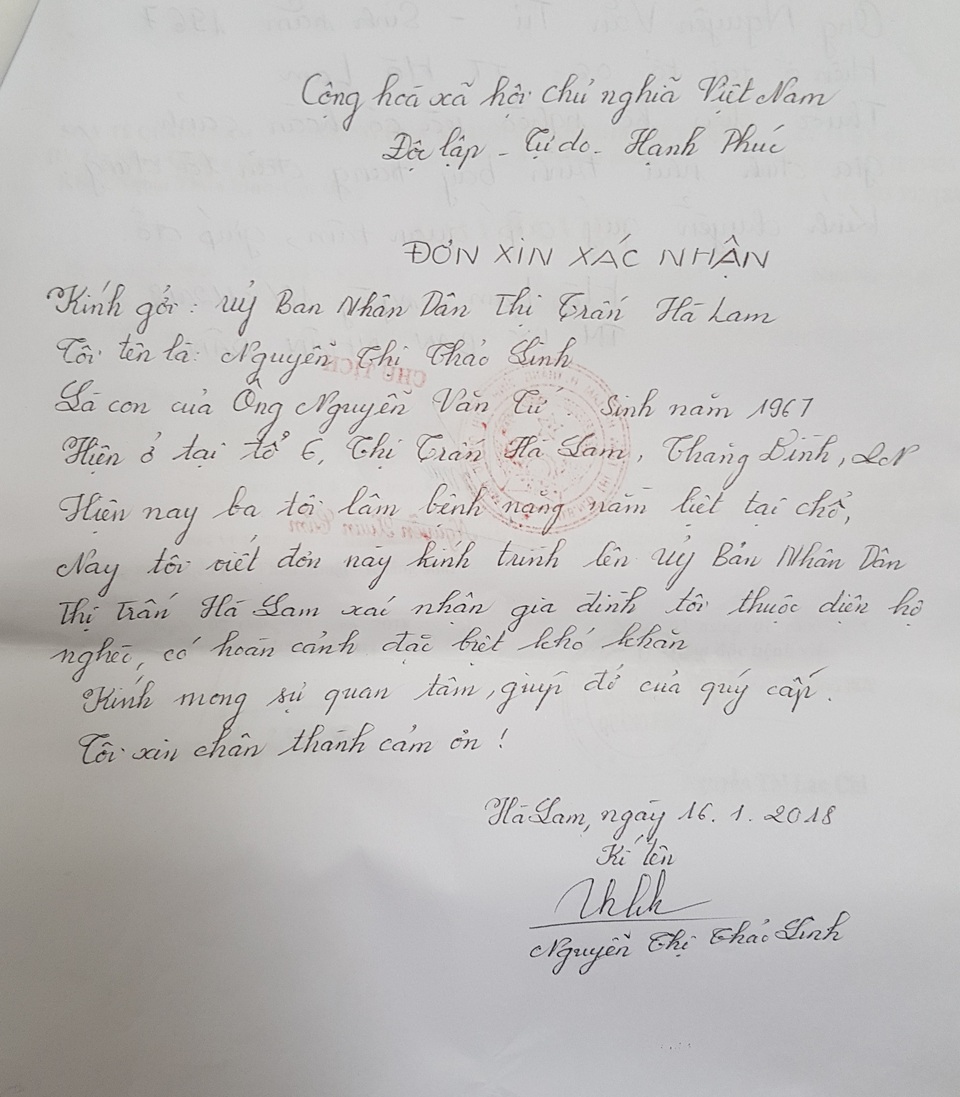 Cộng hoà xã hội chủ nghĩa Việt Nam
Độc lập - Tự do - Hạnh Phúc
ĐƠN XIN XÁC NHẬN
Kính gởi: Uỷ Ban Nhân Dân Thị Trấn Hà Lam
Tôi tên là: Nguyễn Thị Thảo Linh
Là con của Ông Nguyễn Văn Tứ. Sinh năm 1967
Hiện ở tại tổ 6, Thị Trấn Hà Lam, Thăng Bình, QN
Hiện nay ba tôi lâm bệnh nặng nằm liệt tại chổ,
Nay tôi viết đơn này kính trình lên Uỷ Ban Nhân Dân
Thị Trấn Hà Lam xác nhận gia đình tôi thuộc diện hộ
nghèo, có hoàn cảnh đặc biệt khó khăn
Kính mong sự quan tâm, giúp đỡ của quý cấp.
Tôi xin chân thành cảm ơn!
Hà Lam, ngày 16.1.2018
Kí tên
Nguyễn Thị Thảo Linh
CHỦ TỊCH